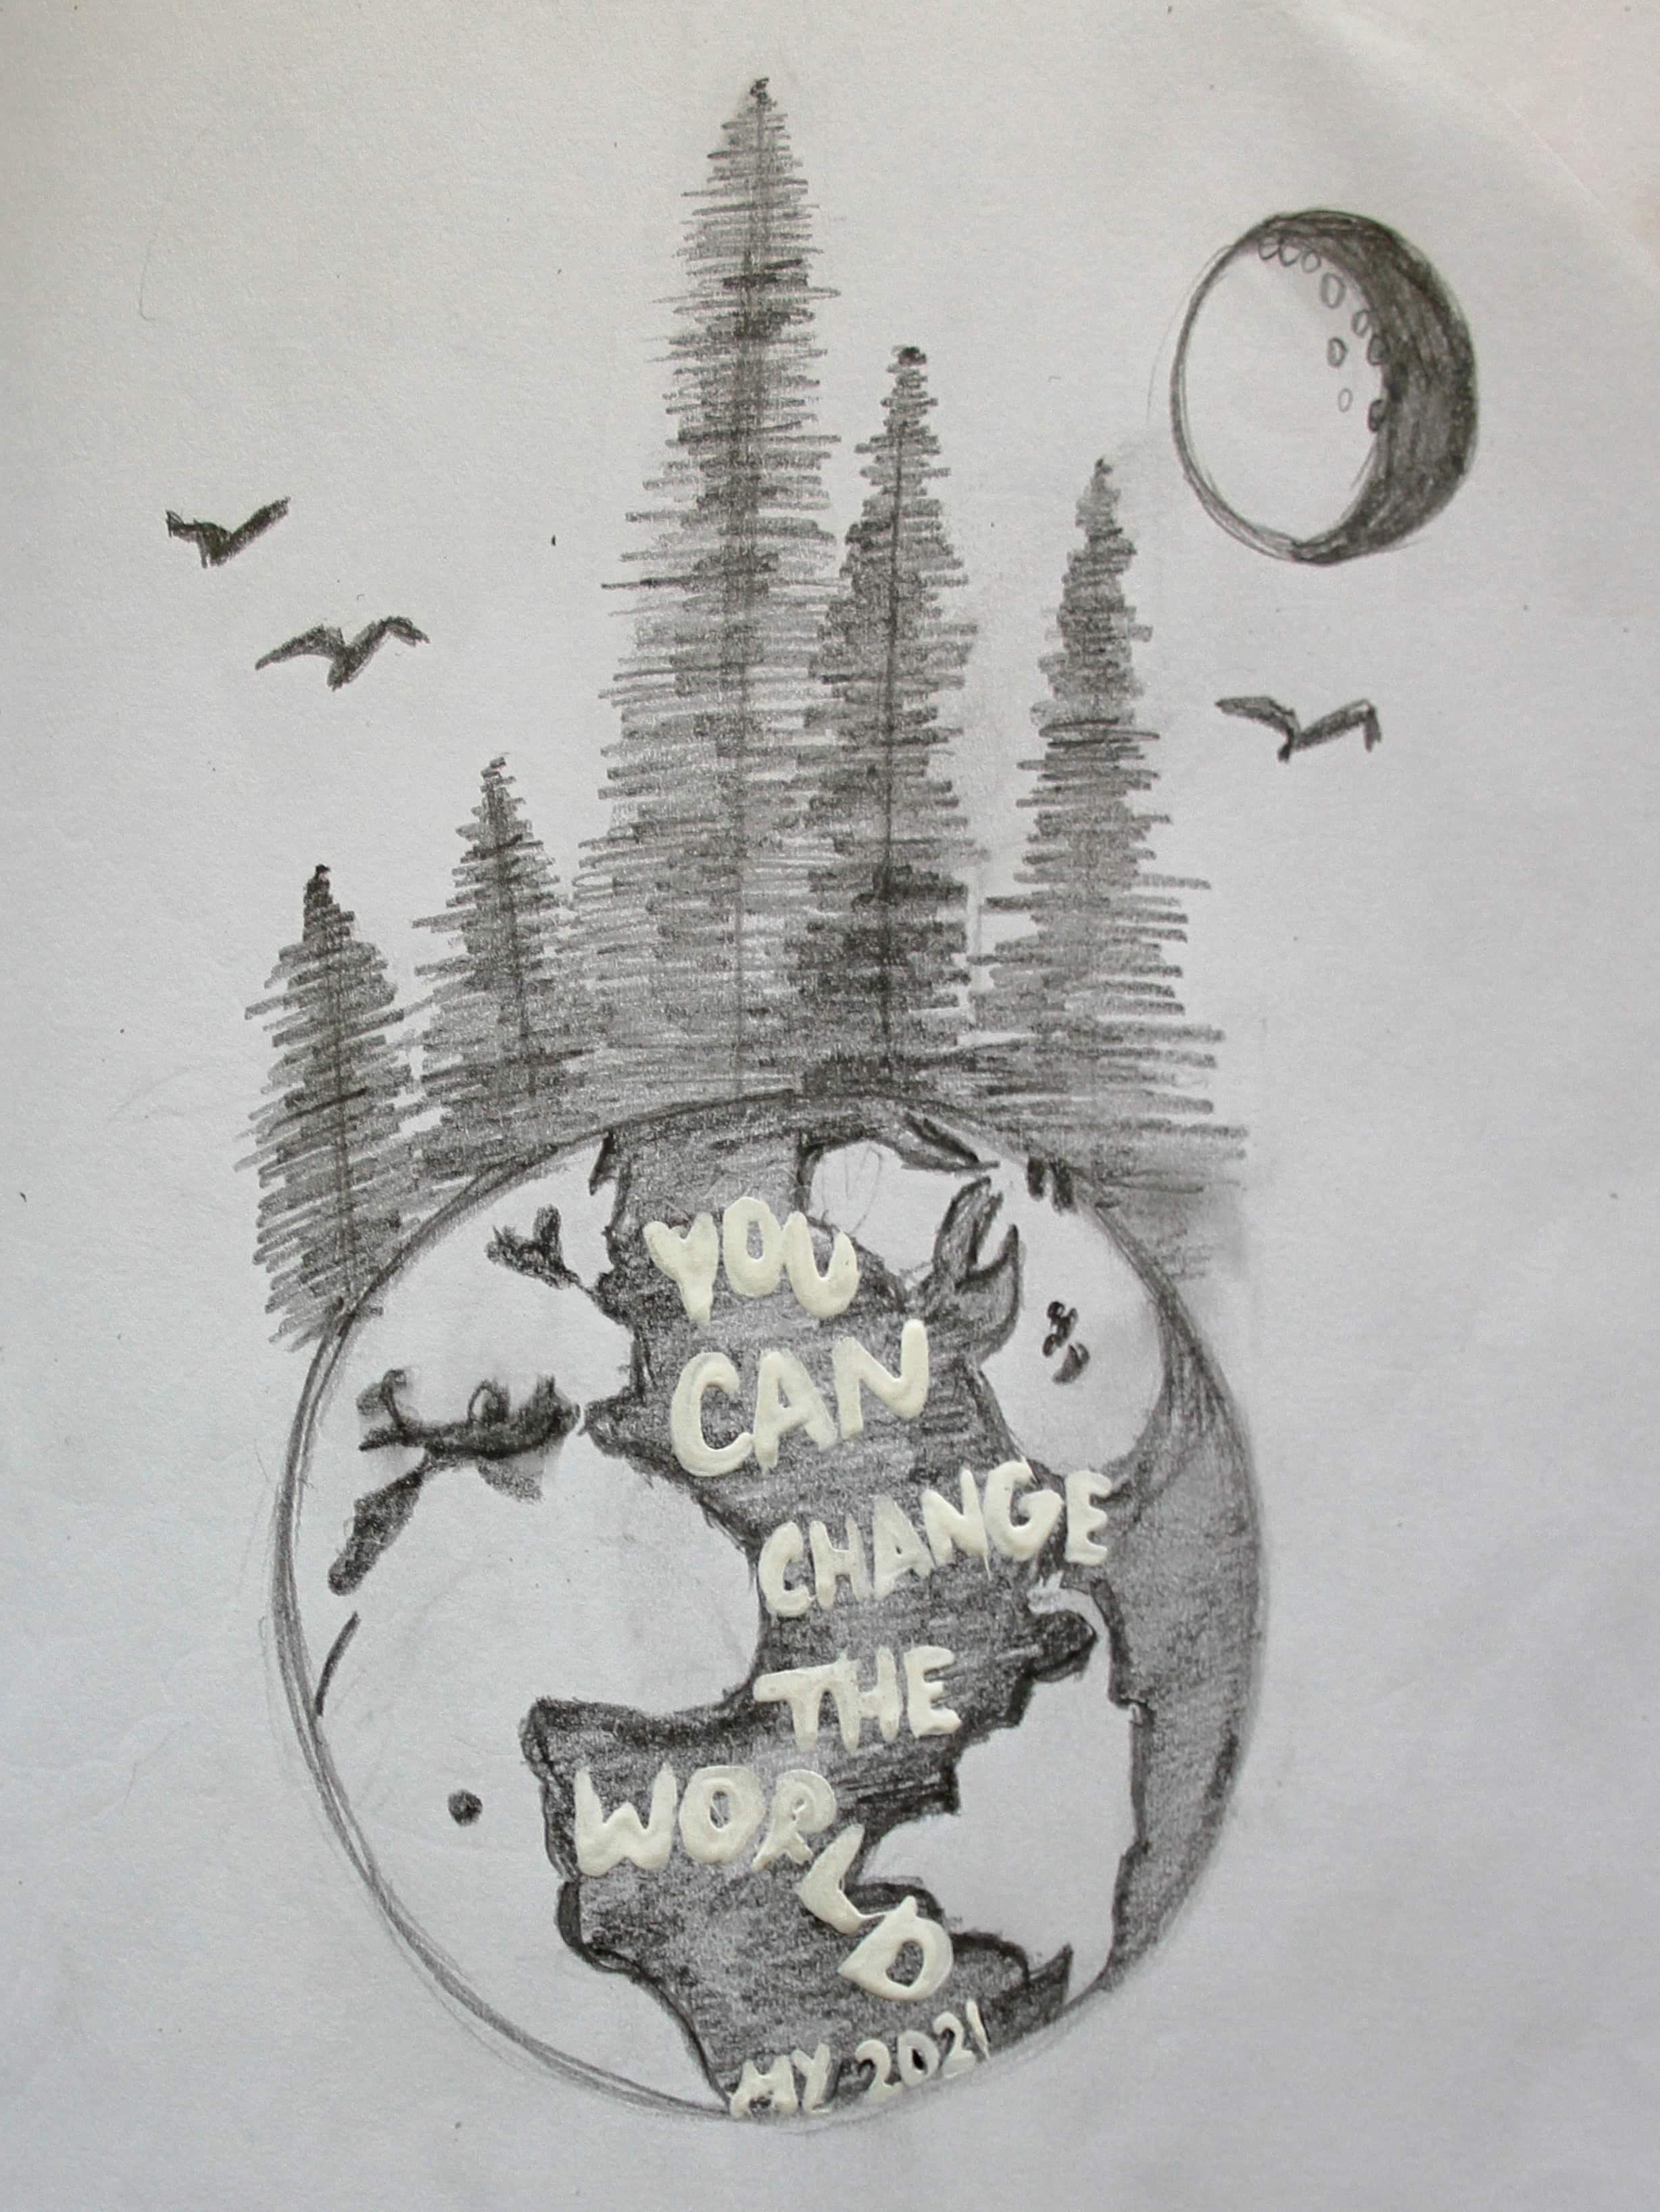 YOU
CAN
CHANGE
THE
WORLD
MY 2021